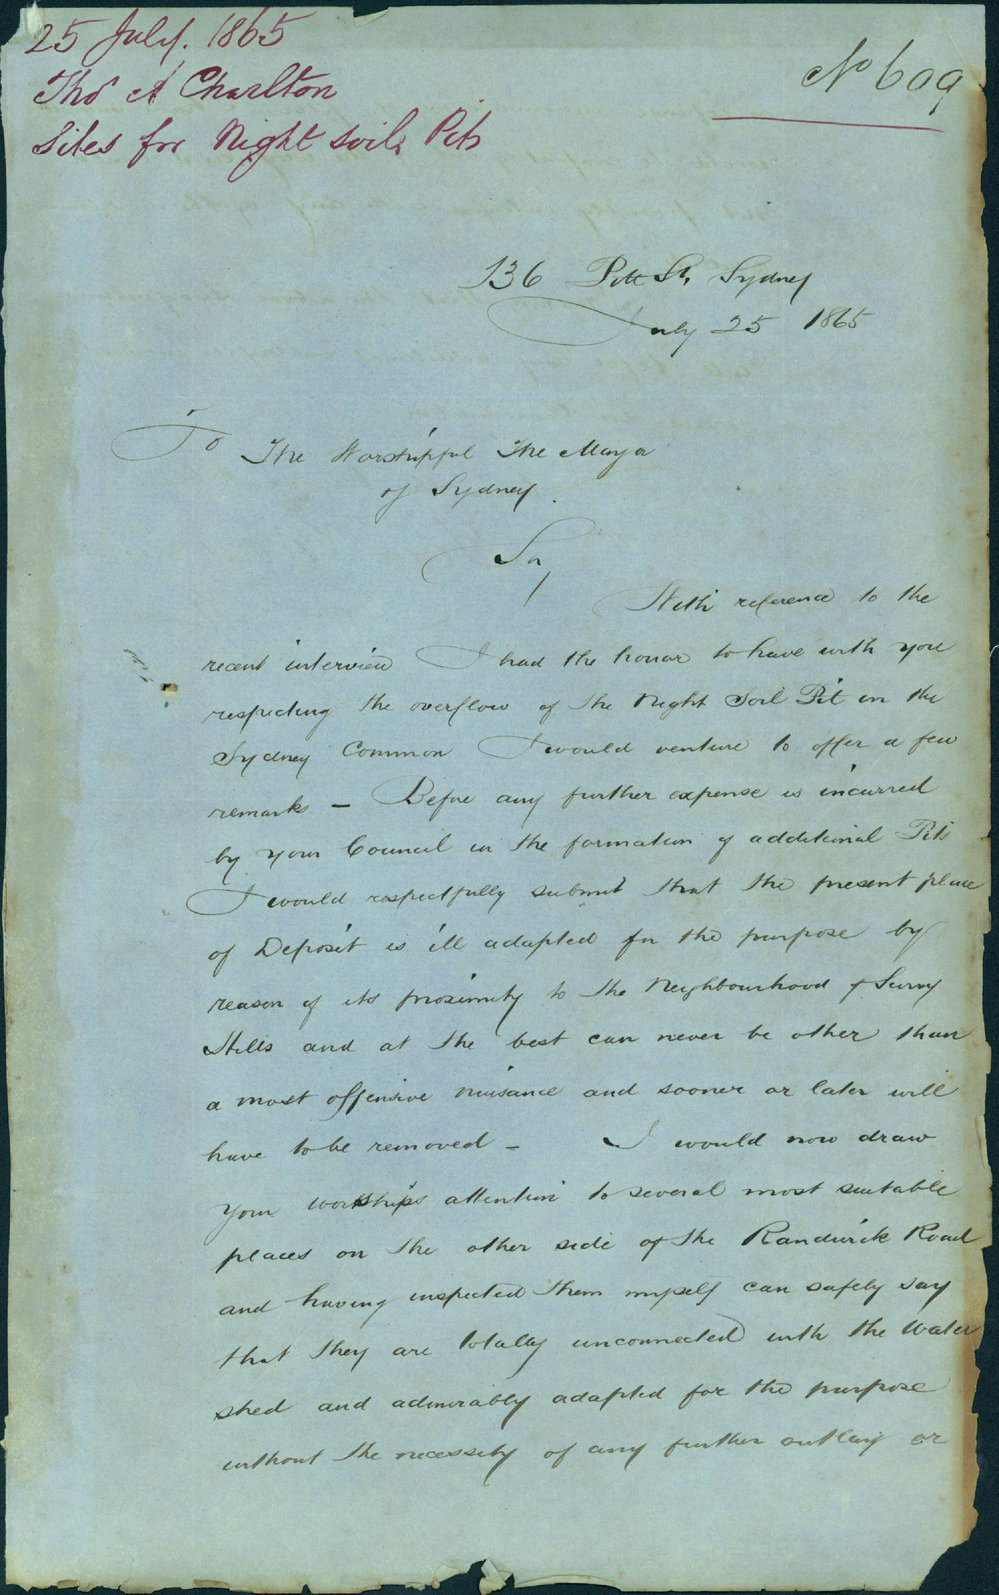 25 July. 1865
Thos A Charlton
Sites for Night soil Pits
No 609
136 Pitt St, Sydney
July 25 1865
To The Worshipful The Mayor
of Sydney.
Sir,
With reference to the
recent interview I had the honor to have with you
respecting the overflow of the Night Soil Pit in the
Sydney Common I would venture to offer a few
remarks — Before any further expense is incurred
by your Council in the formation of additional Pits
I would respectfully submit that the present place
of Deposit is ill adapted for the purpose by
reason of its proximity to the Neighbourhood of Surry
Hills and at the best can never be other than
a most offensive nuisance and sooner or later will
have to be removed — I would now draw
your worships attention to several most suitable
places on the other side of the Randwick Road
and having inspected them myself can safely say
that they are totally unconnected with the Water
shed and admirably adapted for the purpose
without the necessity of any further outlay or